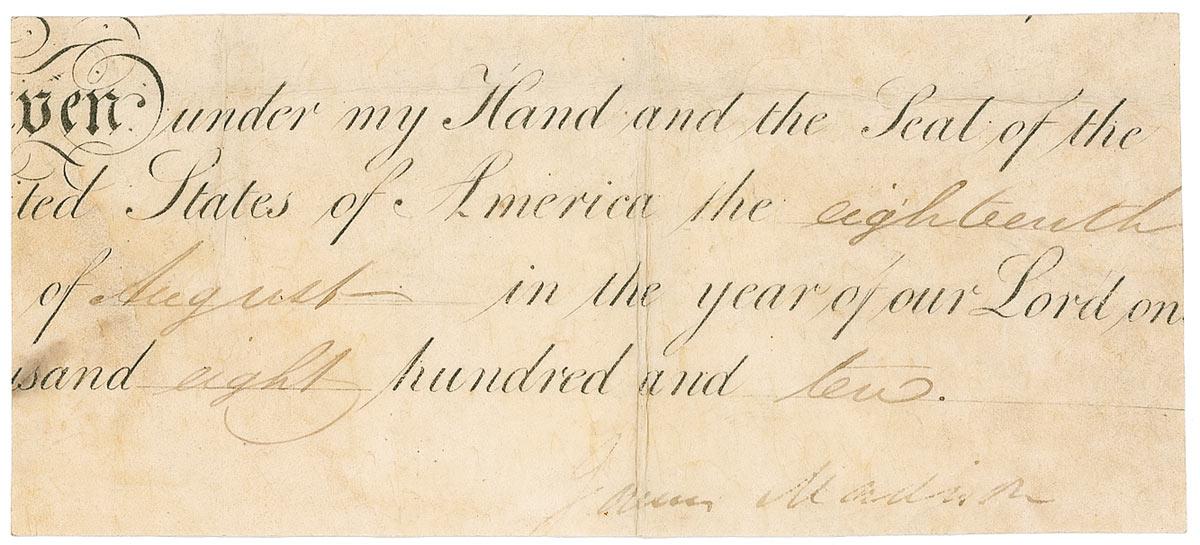 ven under my Hand and the Seal of the
ted States of America the eighteenth
of August in the year of our Lord on
sand eight hundred and ten.
James Madison